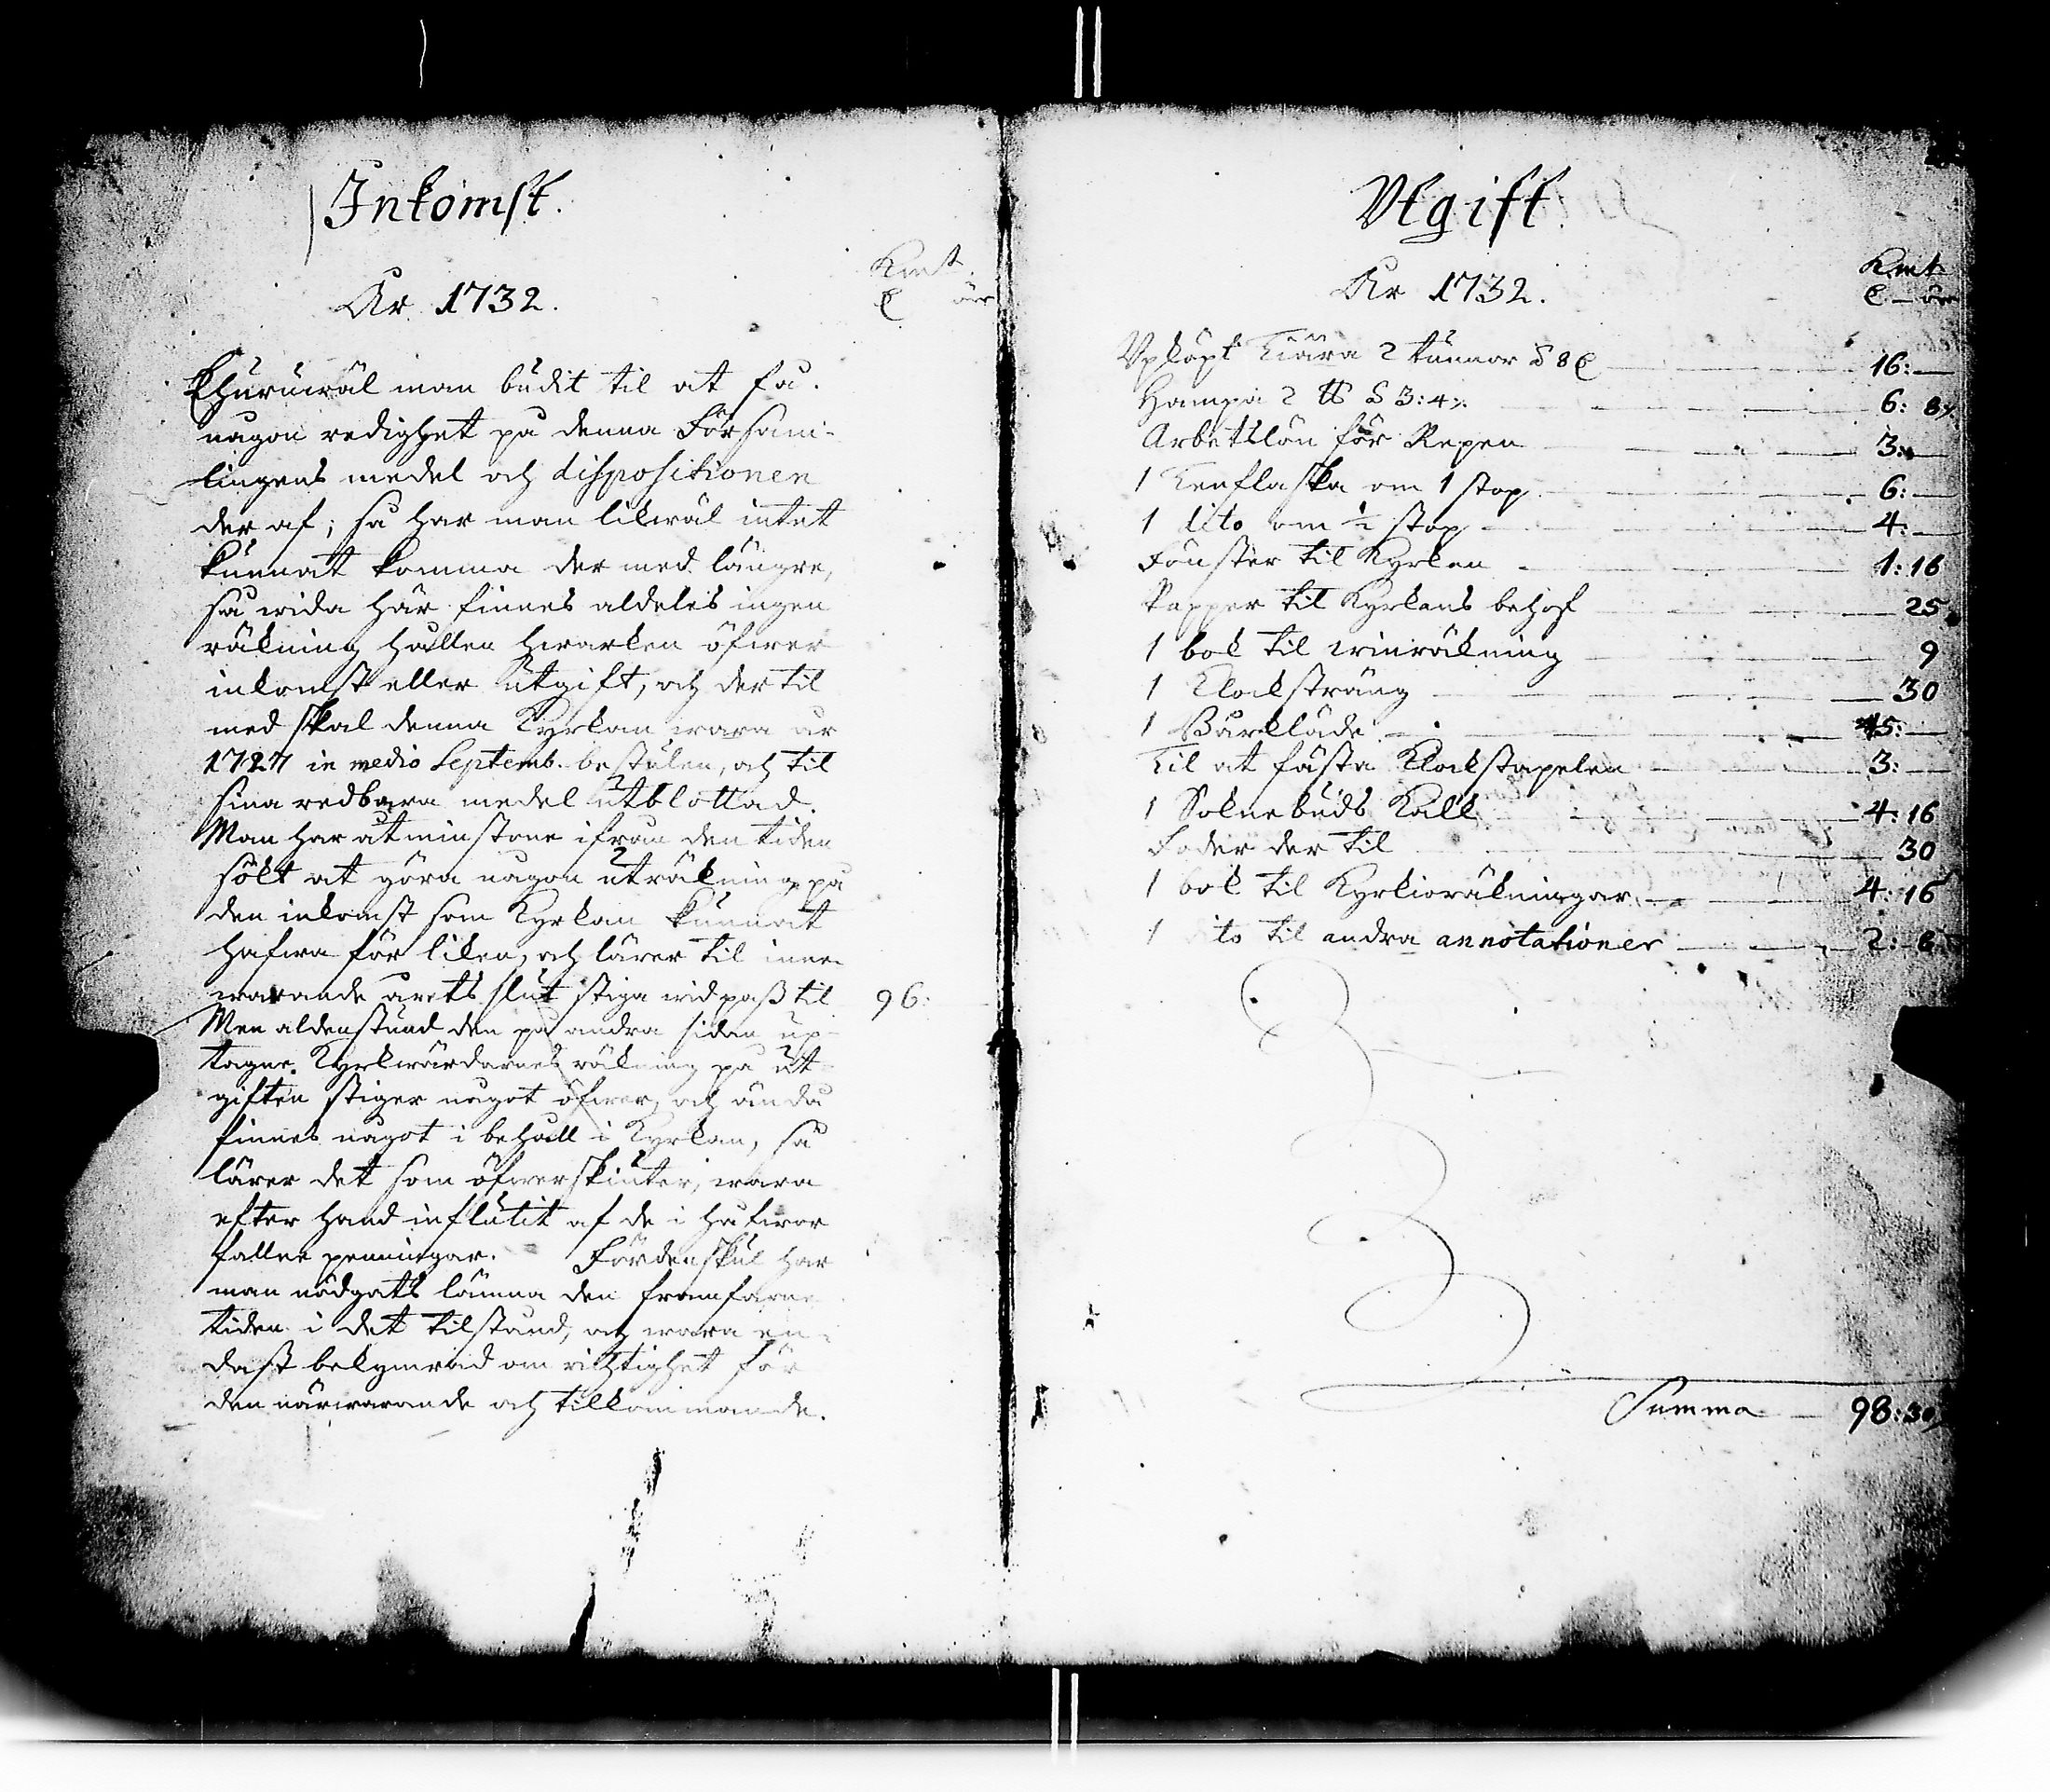 Inkomst.
Kmt.
År 1732.
öre
Ehuruwäl man budit til at få
någon redighet på denna Försam-
lingens medel och dispositionen
der af; så har man likwäl intet
kunnat komma der med längre,
så wida här finnes aldeles ingen
räkning hållen hwarken öfwer
inkomst eller utgift, och der til
med skal denna Kyrkan wara år
1727 in medio Septemb. bestulen, och til
sina redbara medel utblottad.
Man har åtminstone ifrån den tiden
sökt at göra någon uträkning på
den inkomst som Kyrkan kunnat
hafwa för liken, och lärer til inne-
warande årets slut stiga widpass til 96:
Men aldenstund den på andra sidan up-
tagne Kyrkwärdarnes räkning på ut-
giften stiger något öfwer, och ändå
finnes något i behåll i Kyrkan, så
lärer det som öfwerskiuter, wara
efter hand influtit af de i håfwor
fallne penningar. Fördenskul har
man nödgats lämna den framfarne
tiden i det tilstånd, och wara en-
dast bekymrad om richtighet för
den närwarande och tillkommande.
Utgift.
Kmt
År 1732.
öre
Upköpt Tiära 2 tunnor à 8 16:—
Hampa 2 ℔ à 3:4 6: 8
Arbetslön för Repen 3:—
1 Tenflaska om 1 stop 6:—
1 dito om ½ stop 4:—
Fönster til Kyrkan 1:16
Papper til Kyrkans behof 25
1 bok til winräkning 9
1 Klocksträng 30
1 Bårkläde 45:—
Til at fästa Klockstapelen 3:—
1 Soknebuds Kalk 4:16
Foder der til 30
1 bok til Kyrkioräkningar 4:16
1 dito til andra annotationer 2:
Summa 98:30